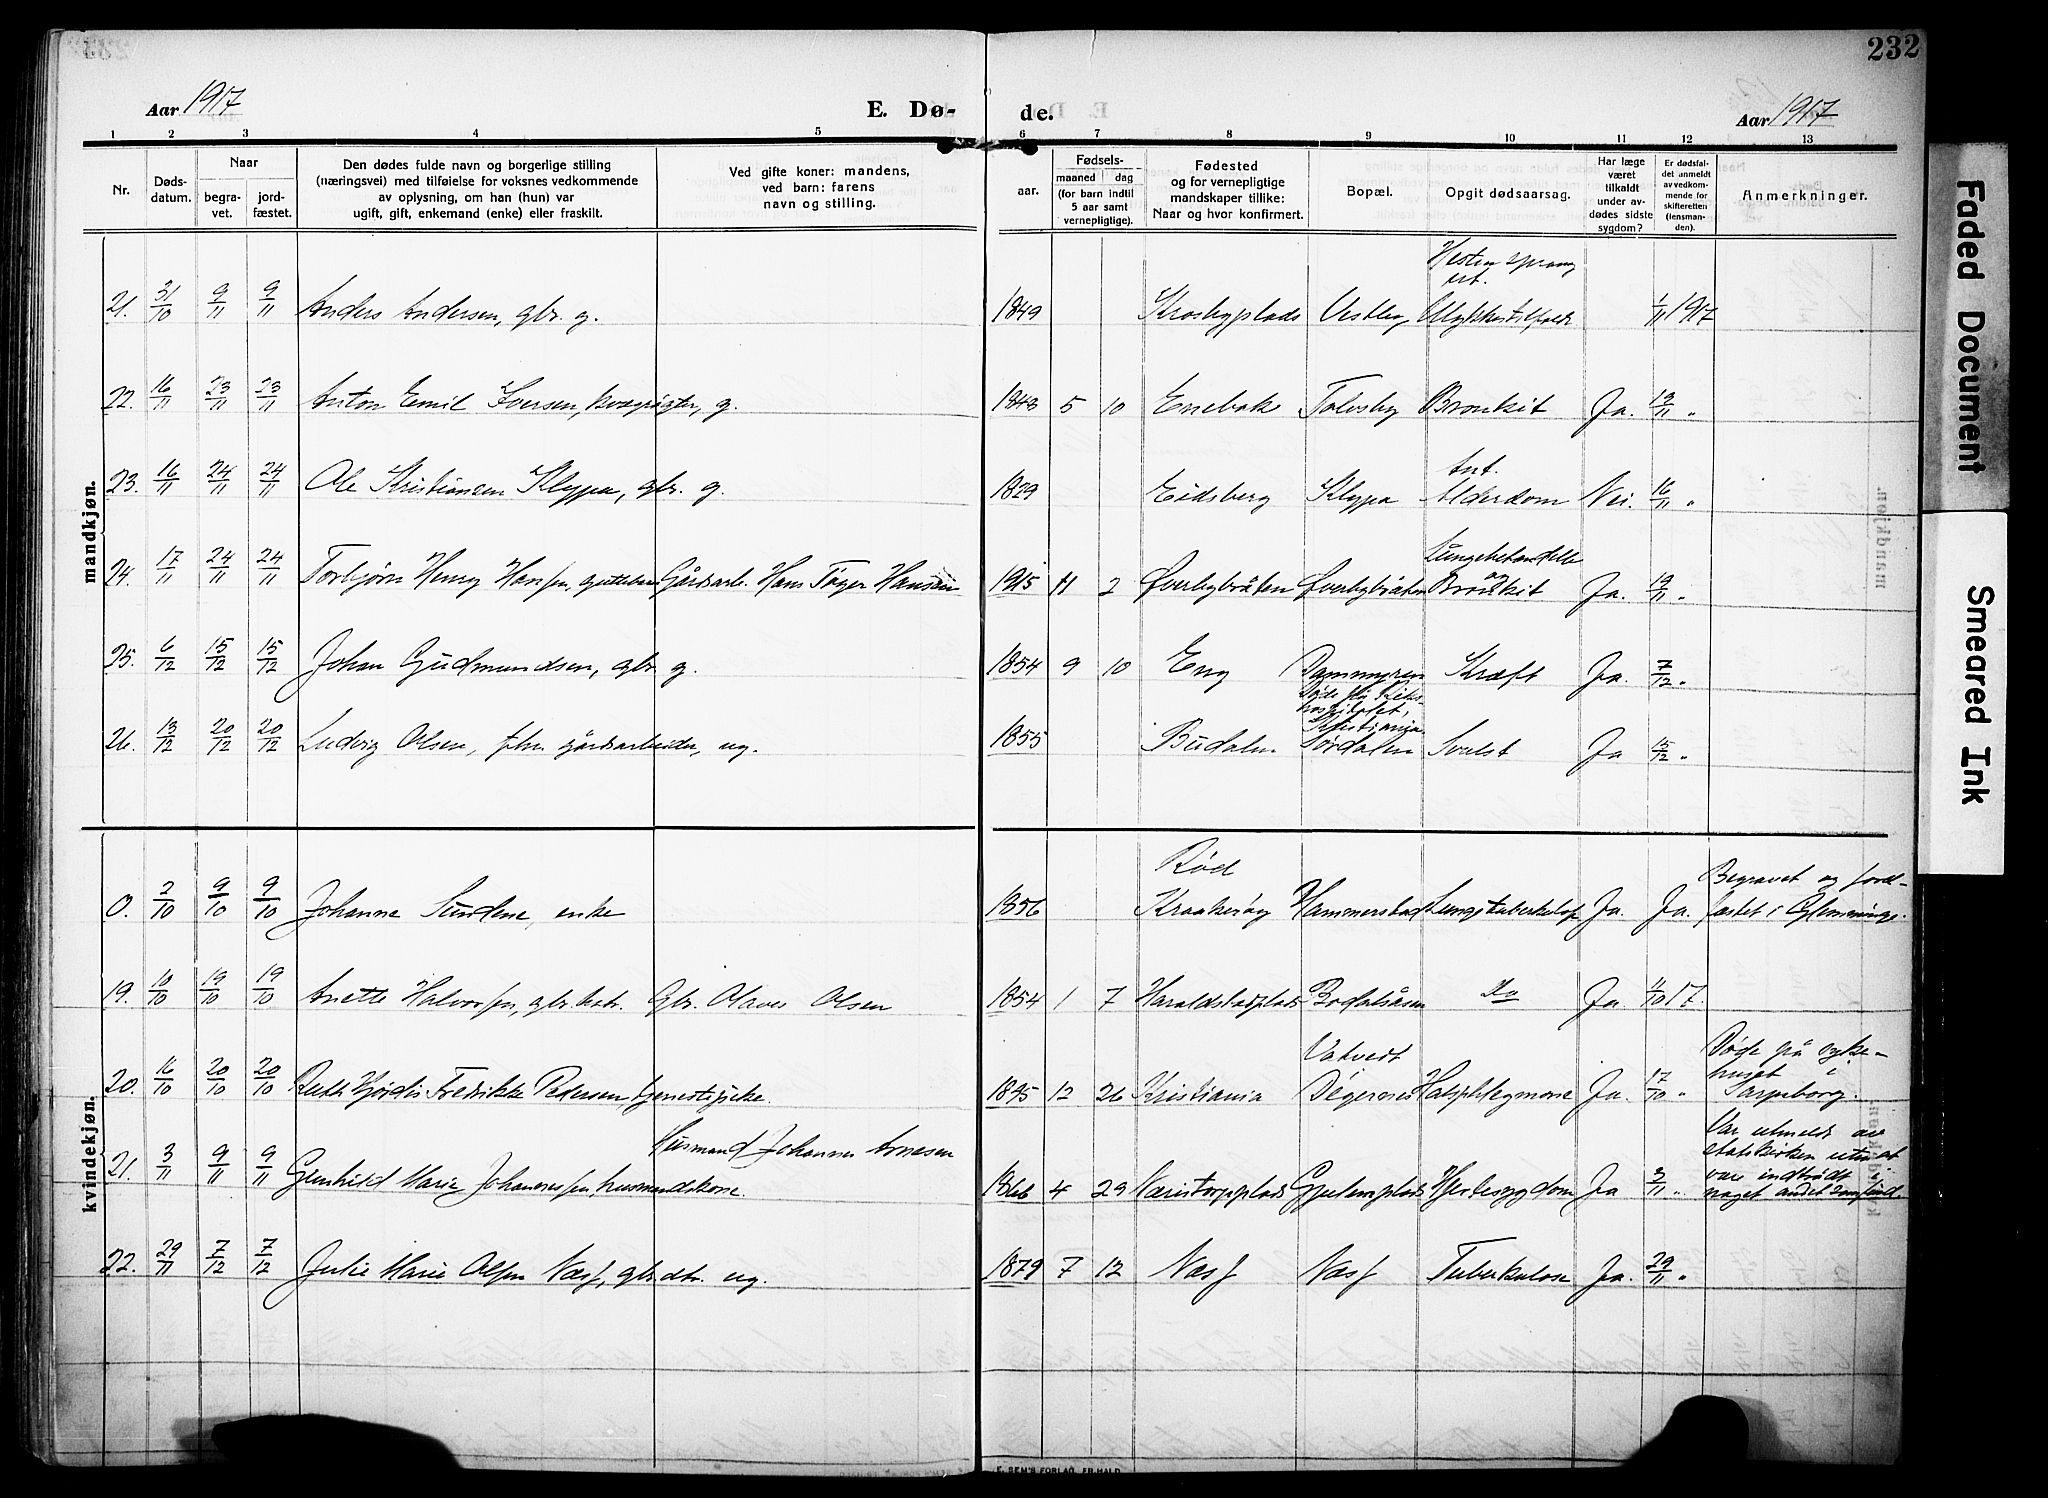 232
Aar 1917
E. Dø-
de.
Aar 1917
1 2 3 4 5 6 7 8 9 10 11 12 13
Nr.
Døds-
datum.
Naar
begra-
vet.
jord-
fæstet.
Den dødes fulde navn og borgerlige stilling
(næringsvei) med tilføielse for voksnes vedkommende
av oplysning, om han (hun) var
ugift, gift, enkemand (enke) eller fraskilt.
Ved gifte koner: mandens,
ved barn: farens
navn og stilling.
aar.
Fødsels-
maaned dag
(for barn indtil
5 aar samt
vernepligtige).
Fødested
og for vernepligtige
mandskaper tillike:
Naar og hvor konfirmert.
Bopæl.
Opgit dødsaarsag.
Har læge
været
tilkaldt
under av-
dødes sidste
sygdom?
Er dødsfal-
det anmeldt
av vedkom-
mende for
skifteretten
(lensman-
den).
Anmerkninger.
mandkjøn.
21. 31/10 9/11 9/11 Anders Andersen, gbr. g. 1849 Krosbyplads Vestby Hesten sprang
ut.
Ulykkestilfælde 1/11 1917
22. 16/11 23/11 23/11 Anton Emil Iversen, kvægrøgter, g. 1848 5 10 Enebak Tolvsby Bronkit Ja. 19/11 "
23. 16/11 24/11 24/11 Ole Kristiansen Klypa, gbr. g. 1829 Eidsberg Klypa Ant.
Alderdom Nei. 16/11 "
24. 17/11 24/11 24/11 Torbjørn Henry Hansen, Gårdsarb. Hans Hansen 1915 11 2 Øverbybråten Øverbybråten Lungebetændelse
og
Bronkit Ja. 19/11 "
25. 6/12 15/12 15/12 Johan Gudmundsen, gbr. g. 1854 9 10 Eng Dammyren Kræft Ja. 7/12 "
26. 13/12 20/12 20/12 Ludvig Olsen, fhv. gårdsarbeider, ug. 1855 Budalen Døde på Riks-
hospitalet,
Kristiania
Sørdalen Svulst Ja 15/12 "
kvindekjøn.
0. 2/10 9/10 9/10 Johanne Sundene, enke 1856 Rød
Kraakerøy Hammerstad Lungetuberkulose Ja. Ja. Begravet og jord-
fæstet i Glemminge.
19. 10/10 19/10 19/10 Anette Halvorsen, gbr.kstr. Gbr. Olaves Olsen 1854 1 7 Haraldstadplads Bodalsåsen Do Ja. 11/10 17.
20. 16/10 20/10 20/10 Ruth Hjørdis Fredrikke Pedersen, tjenestepike. 1895 12 26 Kristiania Vatvedt
Degernes Halsphlegmone Ja. 17/10 " Døde på syke-
huset i
Sarpsborg.
21. 3/11 9/11 9/11 Gunhild Marie Johannessen, husmandskone. Husmand Johannes Arnesen 1866 4 29 Næristorpplads Hjertesygdom Ja 3/11 " Var utmeldt av
statskirken uten at
være indtrådt i
noget andet samfund.
22. 29/11 7/12 7/12 Julie Marie Olsen Næss, gbrdtr. ug. 1879 7 12 Næss Næss Tuberkulose Ja. 29/11 "
E. SEM'S FORLAG, FR.HALD
Faded Document
Smeared Ink